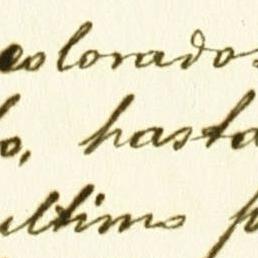 colorados
lo, hasta
ultimo p